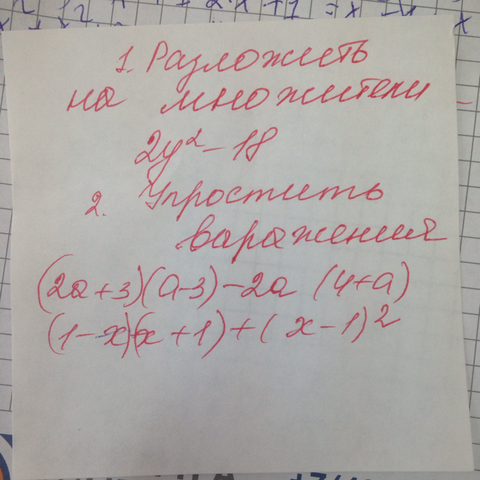 1. Разложить
на множители
2y² - 18
2. Упростить
варажений
(2a+3)(a-3)-2a (4+a)
(1-x)(x+1)+(x-1)2